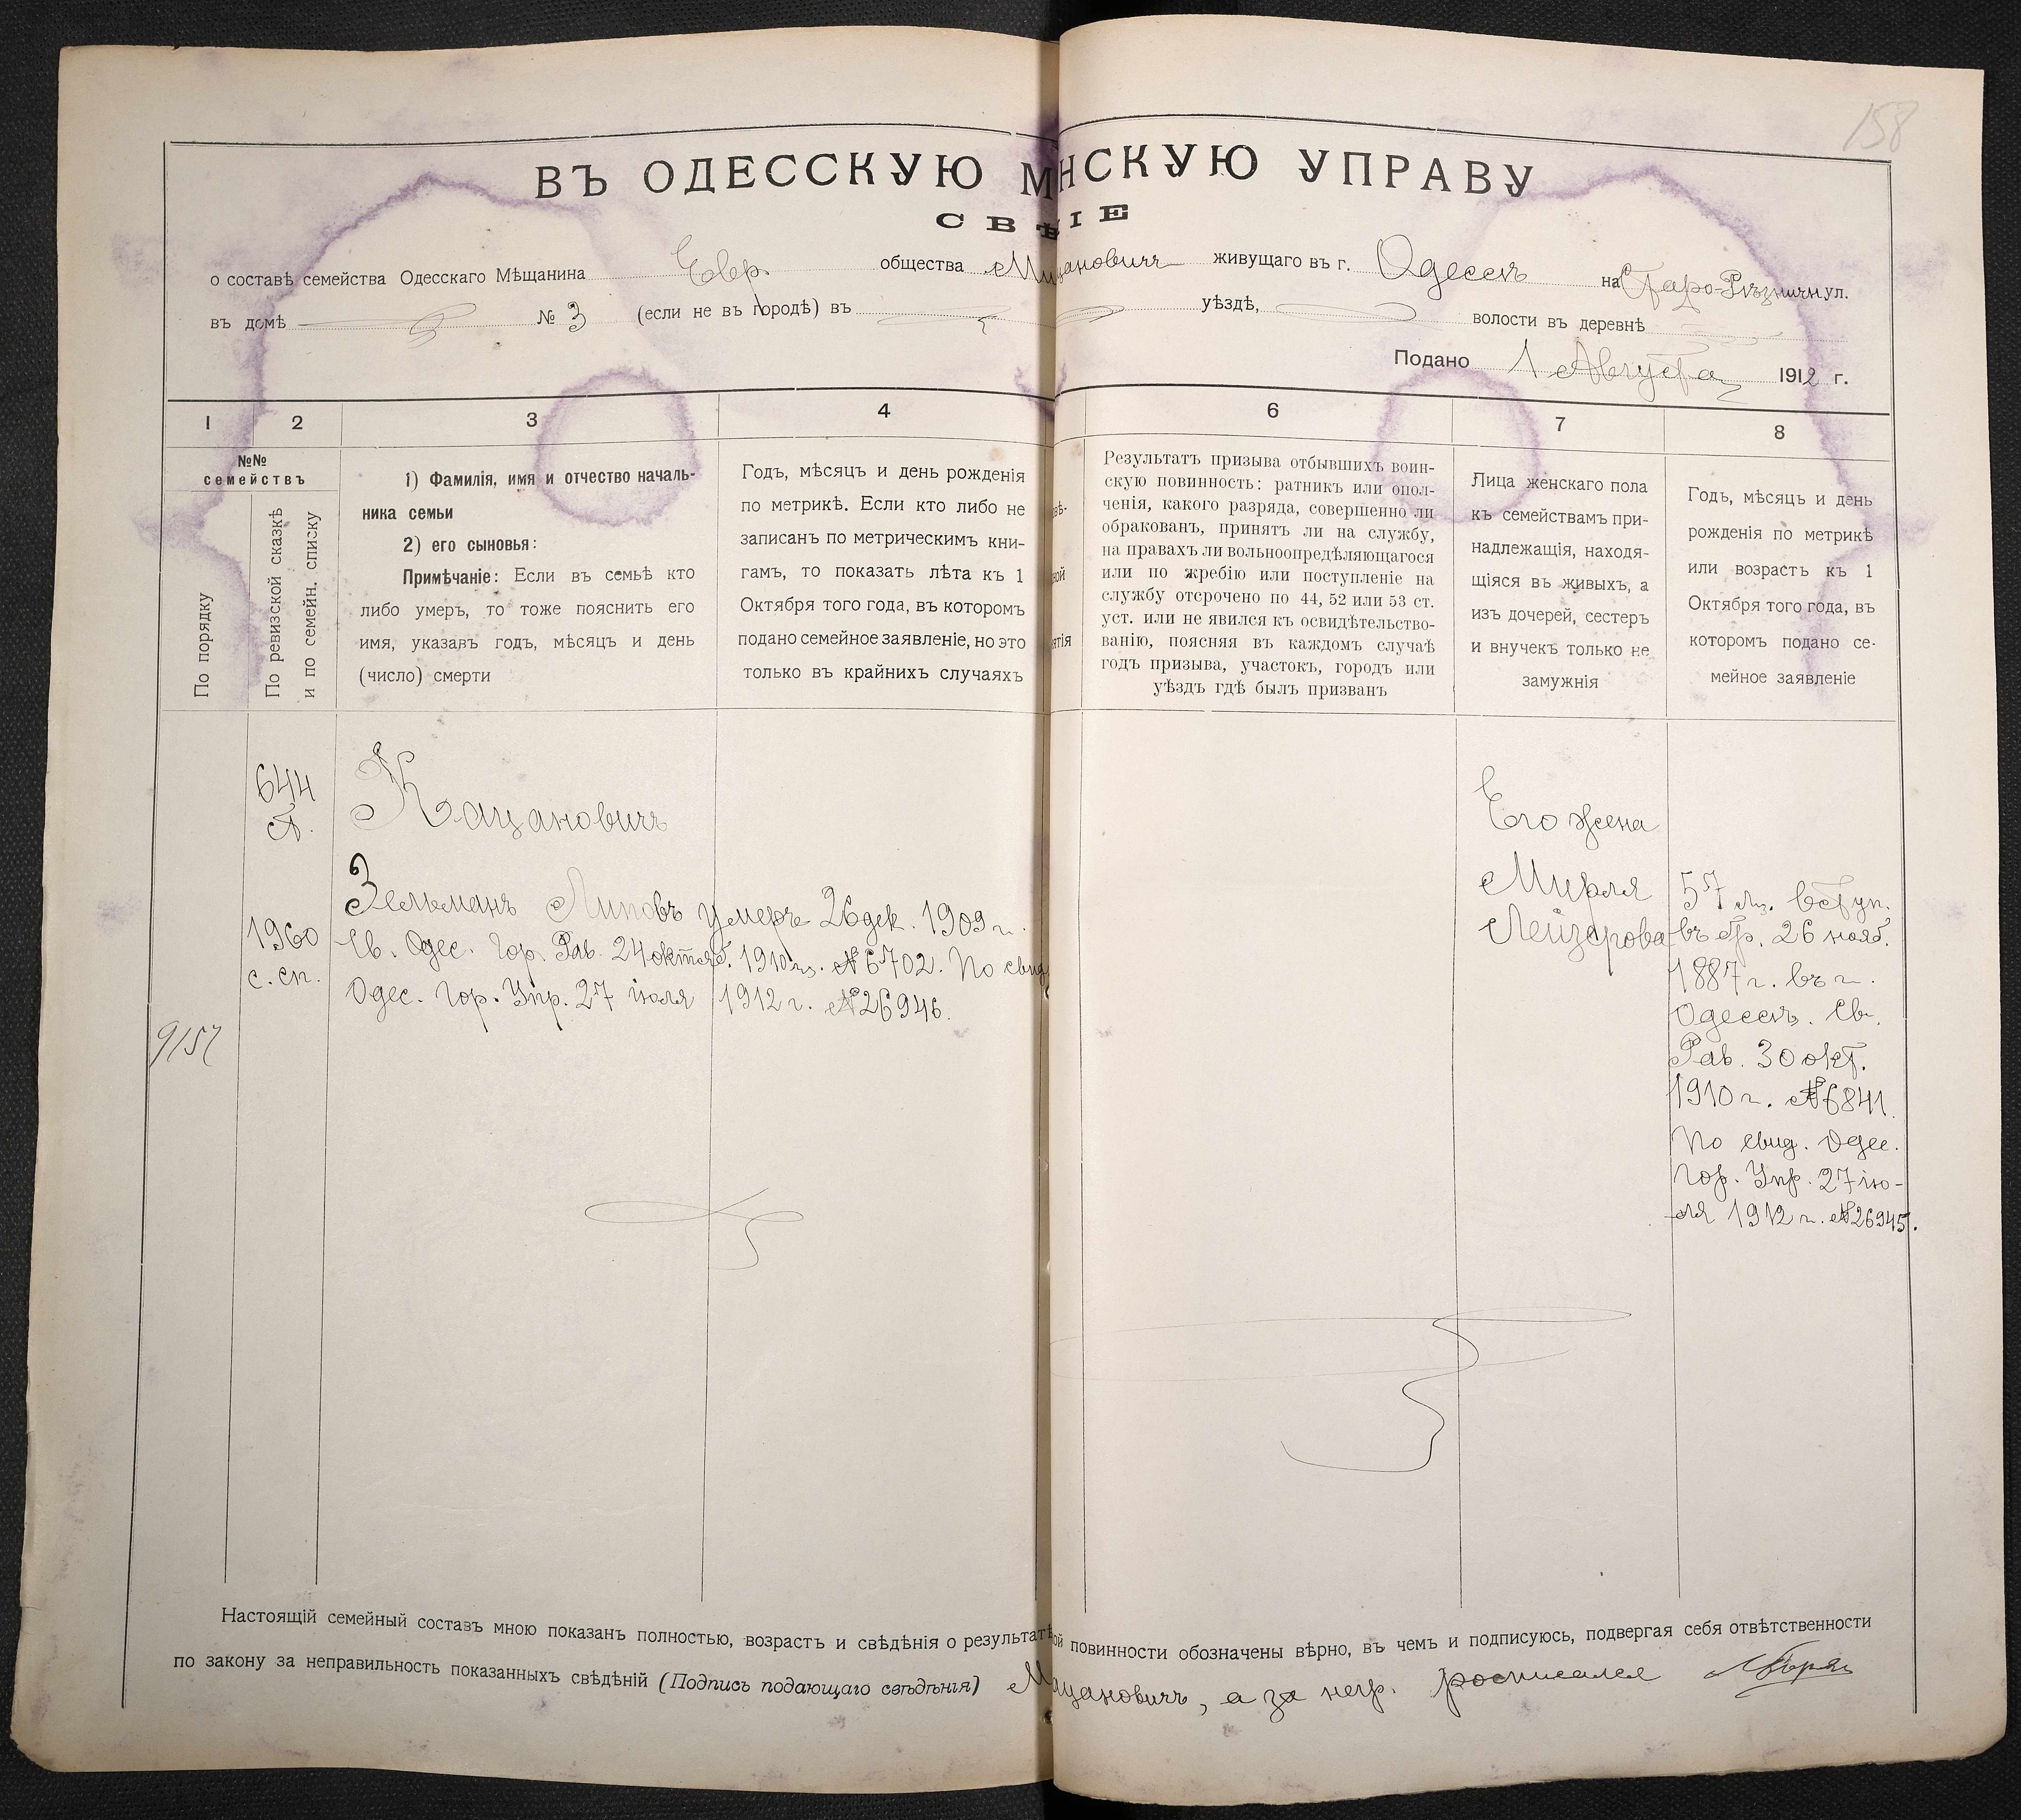 158
ВЪ ОДЕССКУЮ М НСКУЮ УПРАВУ
СВѢ IE
о составѣ семейства Одесскаго Мѣщанина Евр. общества М цановичъ живущаго въ г. Одессѣ на Старо-Рѣзничн ул.
въ домѣ № 3 (если не въ городѣ) въ уѣздѣ, волости въ деревнѣ
Подано 1 Августа 1912 г.
1 2 3 4 6 7 8
№№
семействъ
По порядку
По ревизской сказкѣ
и по семейн. списку
1) Фамилія, имя и отчество началь-
ника семьи
2) его сыновья:
Примѣчаніе: Если въ семьѣ кто
либо умеръ, то тоже пояснить его
имя, указавъ годъ, мѣсяцъ и день
(число) смерти
Годъ, мѣсяцъ и день рожденія
по метрикѣ. Если кто либо не
записанъ по метрическимъ кни-
гамъ, то показать лѣта къ 1
Октября того года, въ которомъ
подано семейное заявленіе, но это
только въ крайнихъ случаяхъ
Результатъ призыва отбывшихъ воин-
скую повинность: ратникъ или опол-
ченія, какого разряда, совершенно ли
обракованъ, принятъ ли на службу,
на правахъ ли вольноопредѣляющагося
или по жребію или поступленіе на
службу отсрочено по 44, 52 или 53 ст.
уст. или не явился къ освидѣтельство-
ванію, поясняя въ каждомъ случаѣ
годъ призыва, участокъ, городъ или
уѣздъ гдѣ былъ призванъ
Лица женскаго пола
къ семействамъ при-
надлежащія, находя-
щіяся въ живыхъ, а
изъ дочерей, сестеръ
и внучекъ только не
замужнія
Годъ, мѣсяцъ и день
рожденія по метрикѣ
или возрастъ къ 1
Октября того года, въ
которомъ подано се-
мейное заявленіе
644
А.
1960
с. сп.
9/57
Кацановичъ
Зельманъ Липовъ умеръ 26 дек. 1909 г.
Св. Одес. Гор. Рав. 24 октяб. 1910 г. № 6702. По свид.
Одес. Гор. Упр. 27 іюля 1912 г. № 26946.
Его жена
Мирля
Лейзерова
57 л. вступ.
въ бр. 26 нояб.
1887 г. въ г.
Одессѣ. Св.
Рав. 30 окт.
1910 г. № 6841.
По свид. Одес.
Гор. Упр. 27 ію-
ля 1912 г. № 26945.
Настоящій семейный составъ мною показанъ полностью, возрастъ и свѣдѣнія о результатѣ ой повинности обозначены вѣрно, въ чемъ и подписуюсь, подвергая себя отвѣтственности
по закону за неправильность показанныхъ свѣдѣній (Подпись подающаго свѣдѣнія) М ацановичъ, а за негр. росписался